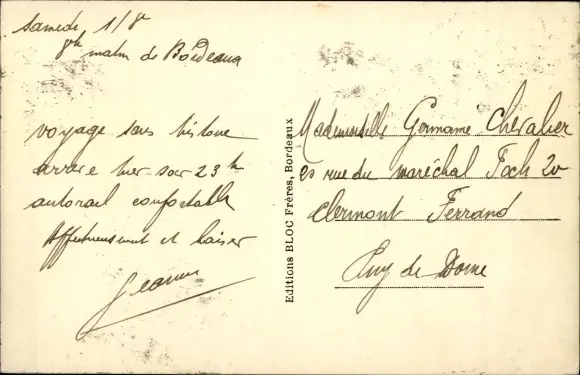 Samedi 1/8
8h matin de Bordeaux
voyage sans histoire
arrivée hier soir 23h
autorail confortable
Affectueusement et baiser
Jeanne
Editions BLOC Frères, Bordeaux
Mademoiselle Germaine Chevalier
20 rue du maréchal Foch 20
Clermont Ferrand
Puy de Dome